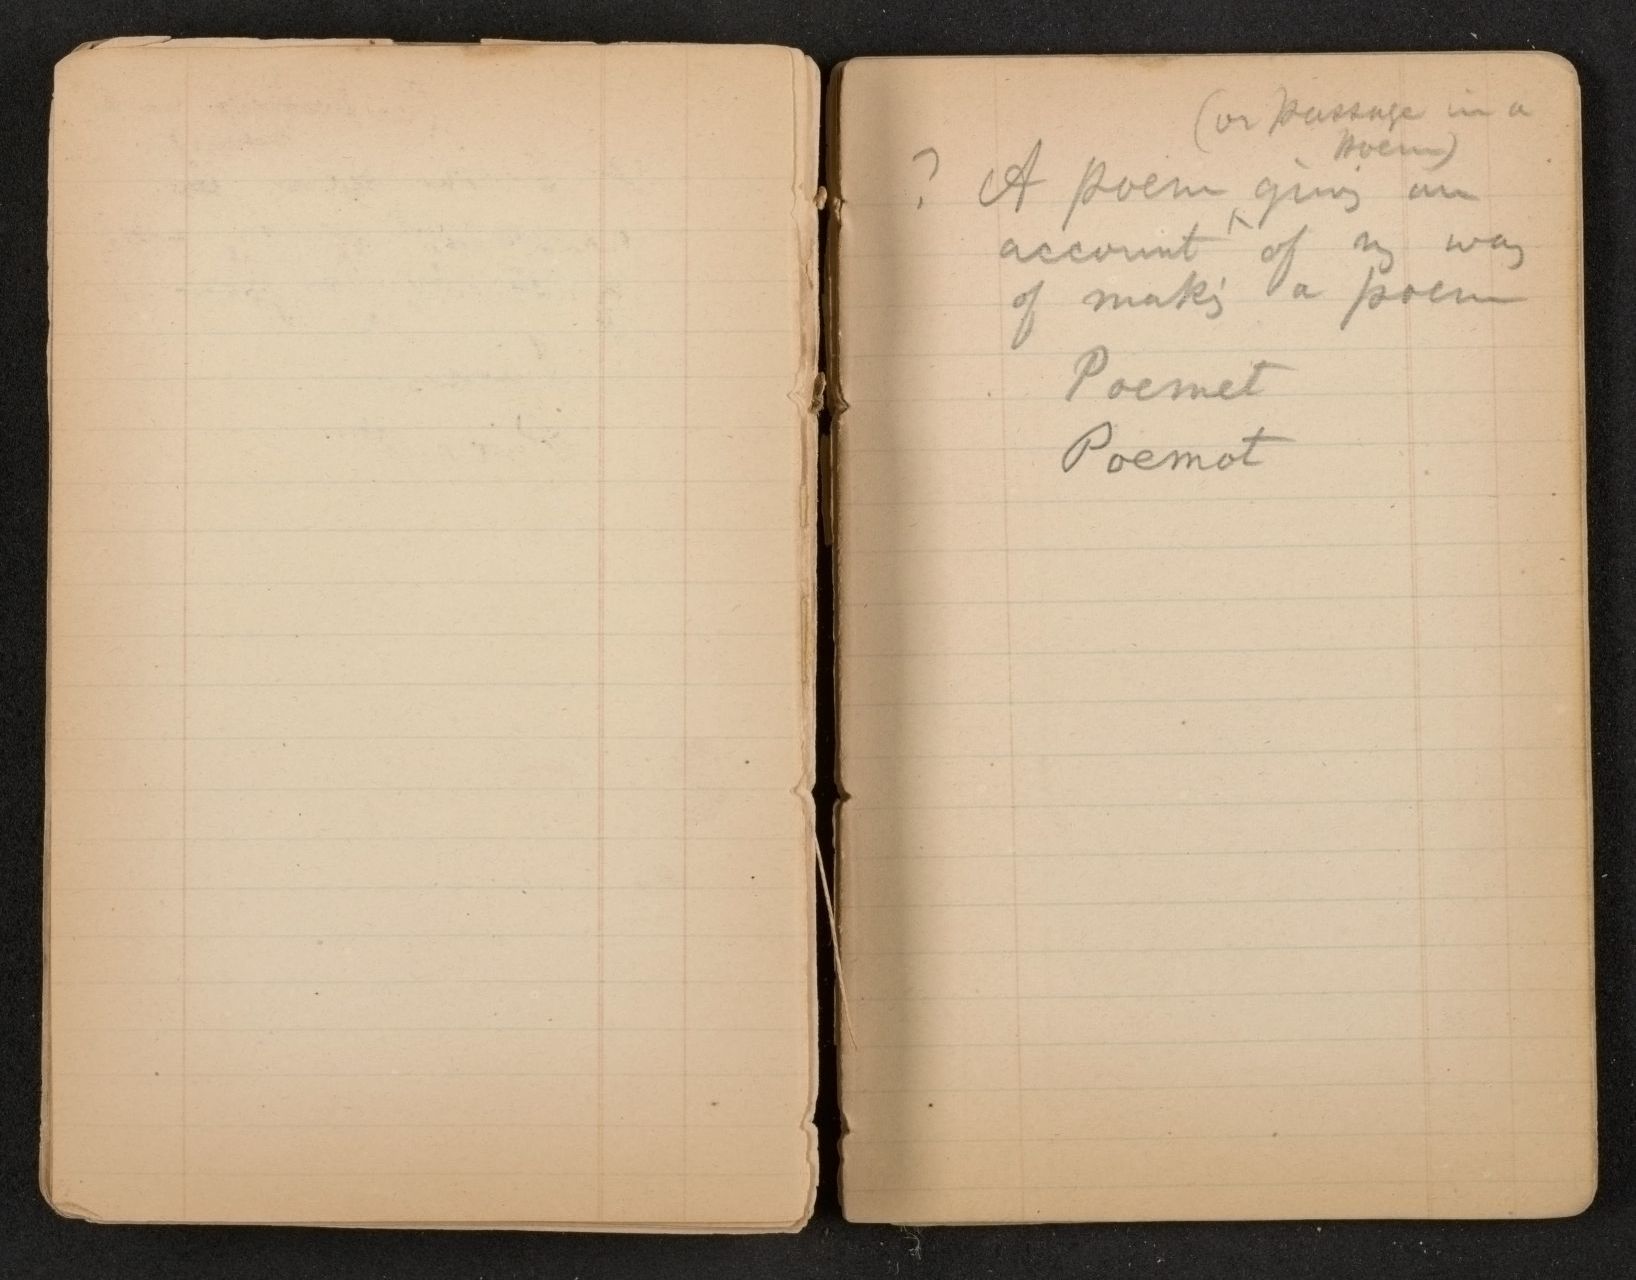 (or passage in a
poem)
? A poem giving an
account of my way
of making a poem
Poemet
Poemot